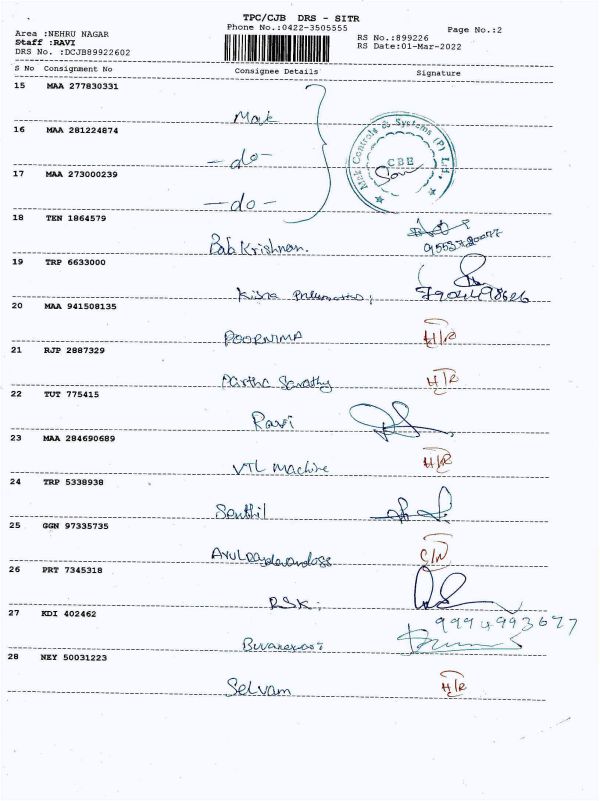 TPC/CJB DRS - SITR
Phone No.:0422-3505555
Page No.:2
Area :NEHRU NAGAR
RS No.:899226
Staff :RAVI
RS Date:01-Mar-2022
DRS No. :DCJB89922602
S No Consignment No Consignee Details Signature
15 MAA 277830331
Mak
16 MAA 281224874
-do-
Mak Controls & Systems (P) Ltd.
CBE
17 MAA 273000239
-do-
18 TEN 1864579
Krishnan.
19 TRP 6633000
20 MAA 941508135
POORNIMA H/R
21 RJP 2887329
Partha Sarathy H/R
22 TUT 775415
Ravi
23 MAA 284690689
VTL Machine H/R
24 TRP 5338938
Senthil
25 GGN 97335735
C/N
26 PRT 7345318
RSK.
27 KDI 402462
9994993677
28 NEY 50031223
Selvam H/R